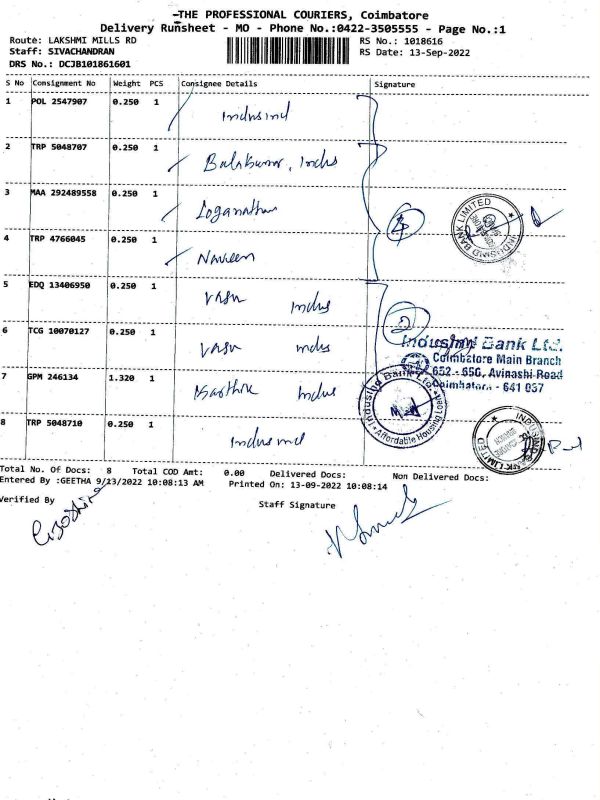 THE PROFESSIONAL COURIERS, Coimbatore
Delivery Runsheet - MO - Phone No.:0422-3505555 - Page No.:1
Route: LAKSHMI MILLS RD RS No.: 1018616
Staff: SIVACHANDRAN RS Date: 13-Sep-2022
DRS No.: DCJB101861601
S No Consignment No Weight PCS Consignee Details Signature
1 POL 2547907 0.250 1 Indusind
2 TRP 5048707 0.250 1 Balakumar, Indus
3 MAA 292489558 0.250 1 Loganathan
4 TRP 4766045 0.250 1 Naveen
4
INDUSIND BANK LIMITED
5 EDQ 13406950 0.250 1 Vasu Indus
2
6 TCG 10070127 0.250 1 Vasu Indus
IndusInd Bank Ltd.
Coimbatore Main Branch
652 - 656, Avinashi Road
Coimbatore - 641 037
7 GPM 246134 1.320 1 Karthik Indus
IndusInd Bank Ltd. Affordable Housing
8 TRP 5048710 0.250 1 Indusind
INDUSIND BANK LIMITED
Total No. Of Docs: 8 Total COD Amt: 0.00 Delivered Docs: Non Delivered Docs:
Entered By :GEETHA 9/13/2022 10:08:13 AM Printed On: 13-09-2022 10:08:14
Verified By Staff Signature